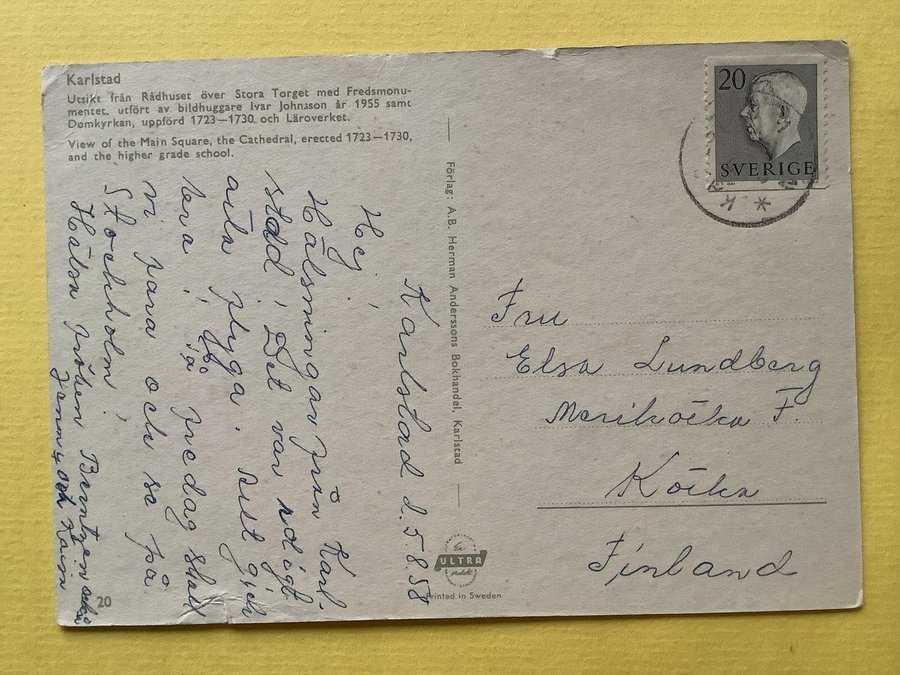 Karlstad
Utsikt från Rådhuset över Stora Torget med Fredsmonu-
mentet, utfört av bildhuggare Ivar Johnsson år 1955 samt
Domkyrkan, uppförd 1723—1730, och Läroverket.
View of the Main Square, the Cathedral, erected 1723—1730,
and the higher grade school.
Karlstad d. 5.8.58
Hej!
Hälsningar från Karl-
stad! Det var roligt
att flyga. Allt gick
bra i
fredag skall
vi fara och se på
Stockholm!
Hälsa fröken Berntzen också
Jenny och Karin
20
Förlag: A.B. Herman Anderssons Bokhandel, Karlstad
En
ULTRA
produkt
Printed in Sweden
20
SVERIGE
Fru
Elsa Lundberg
F.
Finland